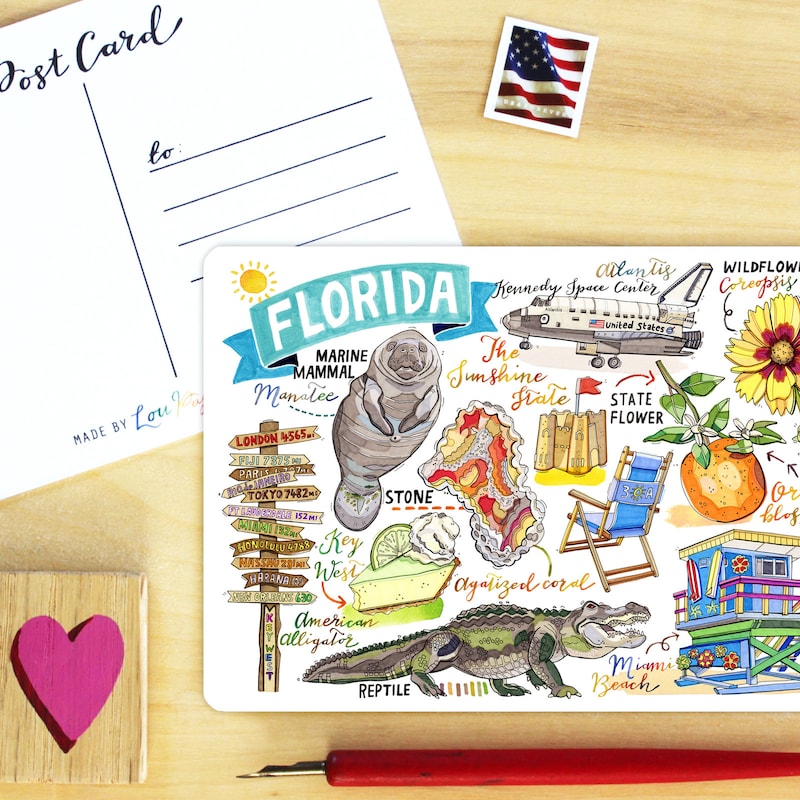 Post Card
to:
MADE BY Lou
FLORIDA
MARINE
MAMMAL
Manatee
Atlantis
Kennedy Space Center
United States
The
Sunshine
State
STATE
FLOWER
WILDFLOW
Coreopsis
STONE
Agatized coral
Key
West
American
Alligator
REPTILE
Miami
Beach
Or
blos
LONDON 4565 MI
FIJI 7375 MI
PARIS
RIO de JANEIRO
TOKYO 7482 MI
FT LAUDERDALE 152 MI
MIAMI
HONOLULU 4788
NASSAU
HABANA
NEW ORLEANS 630
KEY WEST